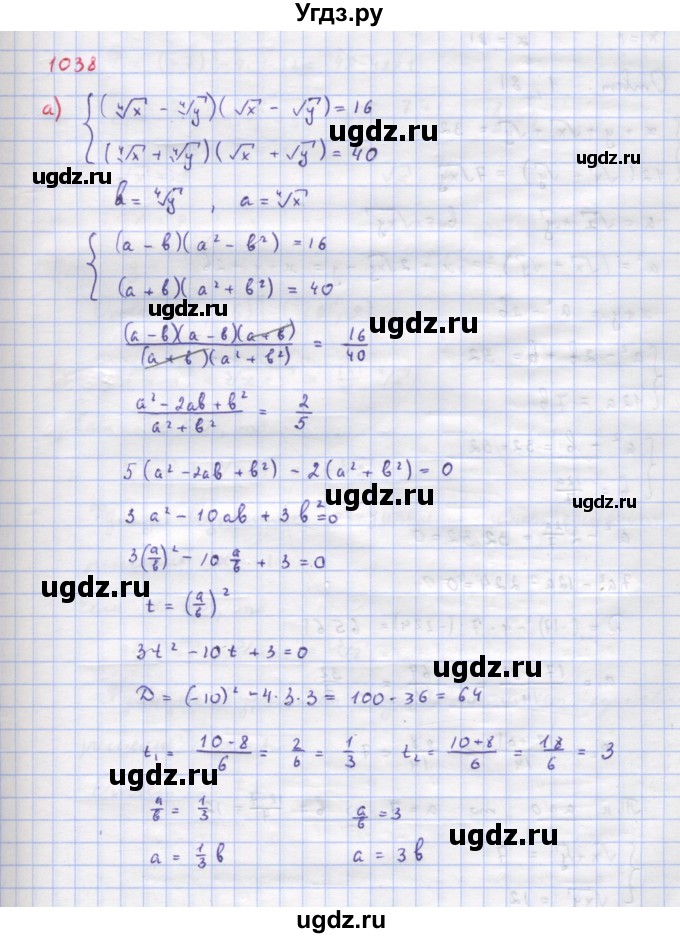 Угдз.ру
1038
а) { (⁴√x − ⁴√y)(√x − √y) = 16
(⁴√x + ⁴√y)(√x + √y) = 40
ugdz.ru
ugdz.ru
b = ⁴√y , a = ⁴√x
{ (a − b)(a² − b²) = 16
(a + b)(a² + b²) = 40
ugdz.ru
ugdz.ru
(a − b)(a − b)(a + b) / (a + b)(a² + b²) = 16/40
ugdz.ru
(a² − 2ab + b²) / (a² + b²) = 2/5
5(a² − 2ab + b²) − 2(a² + b²) = 0
ugdz.ru
3a² − 10ab + 3b² = 0
3(a/b)² − 10 a/b + 3 = 0
ugdz.ru
ugdz.ru
t = (a/b)²
3t² − 10t + 3 = 0
ugdz.ru
D = (−10)² − 4·3·3 = 100 − 36 = 64
t₁ = (10 − 8)/6 = 2/6 = 1/3 t₂ = (10 + 8)/6 = 18/6 = 3
ugdz.ru
a/b = 1/3 a/b = 3
ugdz.ru
a = 1/3 b a = 3b
ugdz.ru
ugdz.ru